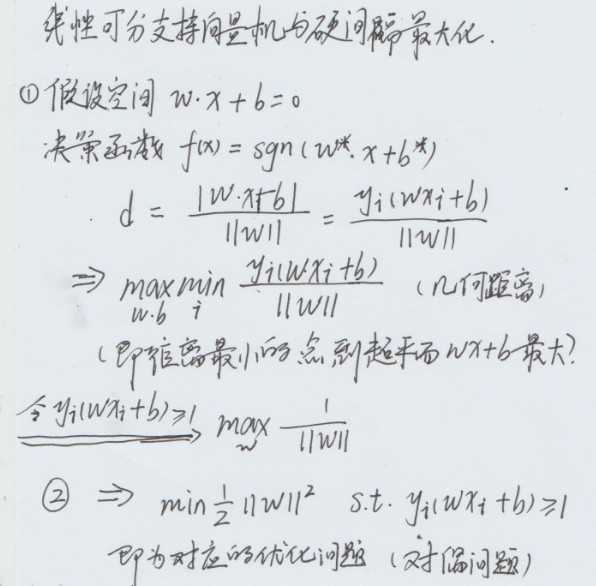 线性可分支持向量机与硬间隔最大化.
① 假设空间 w·x+b=0
决策函数 f(x) = sgn(w*·x+b*)
d = |w·x+b| / ||w|| = yi(wxi+b) / ||w||
⇒ max min yi(wxi+b) / ||w|| (几何距离)
w.b i
(即距离最小的点到超平面wx+b最大)
令yi(wxi+b)≥1 max 1 / ||w||
w
② ⇒ min 1/2 ||w||² s.t. yi(wxi+b)≥1
即为对应的优化问题 (对偶问题)